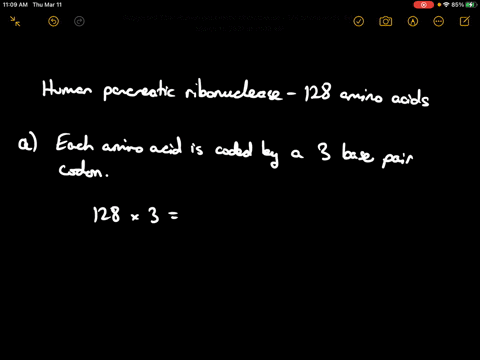 11:09 AM Thu Mar 11
85%
Human pancreatic ribonuclease - 128 amino acids
a) Each amino acid is coded by a 3 base pair
codon.
128 × 3 =